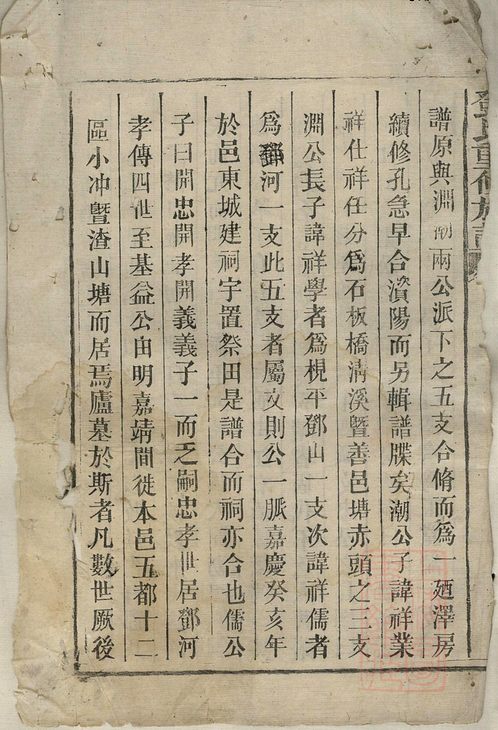 鄧氏重修族譜
譜原與淵潮兩公派下之五支合脩而爲一廼澤房
續修孔急早合濱陽而另輯譜牒矣潮公子諱祥業
祥仕祥任分爲石板橋清溪暨善邑塘赤頭之三支
淵公長子諱祥學者爲梘平鄧山一支次諱祥儒者
爲鄧河一支此五支者屬文則公一脈嘉慶癸亥年
於邑東城建祠宇置祭田是譜合而祠亦合也儒公
子曰開忠開孝開義義子一而乏嗣忠孝世居鄧河
孝傳四世至基益公由明嘉靖間徙本邑五都十二
區小冲暨渣山塘而居焉廬墓於斯者凡數世厥後